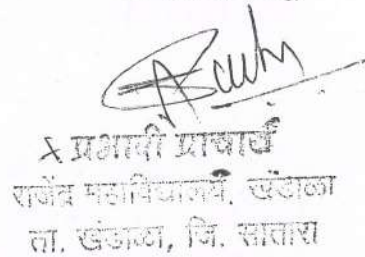 प्रभारी प्राचार्य
राजेंद्र महाविद्यालय, खंडाळा
ता. खंडाळा, जि. सातारा